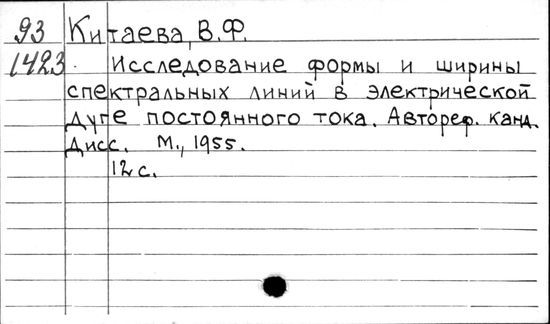 93 Китаева, В.Ф.
1423 Исследование формы и ширины
спектральных линий в электрической
дуге постоянного тока. Автореф. канд.
Дисс. М., 1955.
12 с.